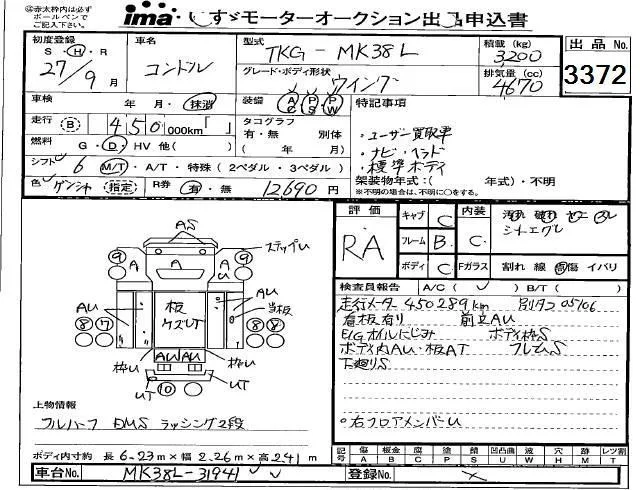 ㊟赤太枠内は必ず
ボールペンで
ご記入下さい。
ima いすゞモーターオークション出品申込書
初度登録 車名 型式 TKG-MK38L 積載(kg) 3,200 出品No.
S・H・R 27/9月 コンドル グレード・ボディ形状 ウイング 排気量(cc) 4670 3372
車検 年・月・抹消 装備 AC PS PW 特記事項
走行(B) 450,000km「 」 タコグラフ ・ユーザー買取車
燃料 G・D・HV 他( ) 有・無 別体 ・ナビ・ヘッド
シフト 6 M/T・A/T・特殊(2ペダル・3ペダル) ( 年/ 月) ・標準ボディ
色 ゲンシャ(指定) R券 有・無 12690円 架装物年式:( 年式)・不明
※不明の場合は、不明に○をする。
評価 キャブ C 内装 汚れ 破れ
RA フレーム B C シートエグレ
ボディ C Fガラス 割れ 線 傷 イバリ
AS
ステップU
9 A A U 9
AU AU
板 当板
ケズレT
8 17 8 8
AU AU
枠U 枠U
UT UT
10
検査員報告 A/C( ) B/T( )
走行メーター 450289km 別タコ 05/06
看板有り 前立AU
E/Gオイルにじみ ボディ枠S
ボディ内AU・板AT フレームS
下廻りS
・右フロアメンバーU
上物情報
フルハーフ DMS ラッシング2段
ボディ内寸約 長 6.23m×幅 2.26m×高 2.41m
記号 傷A 板金B 腐C 塗P 錆S 凹凸曲U 波W 穴H 跡M レツ割T
車台No. MK38L-31941 登録No. ×